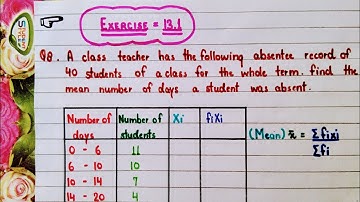 EXERCISE = 13.1
Q8. A class teacher has the following absentee record of
40 students of a class for the whole term. find the
mean number of days a student was absent.
Number of days Number of students Xi fiXi
(Mean) x̄ = Σfixi / Σfi
0 - 6 11
6 - 10 10
10 - 14 7
14 - 20 4